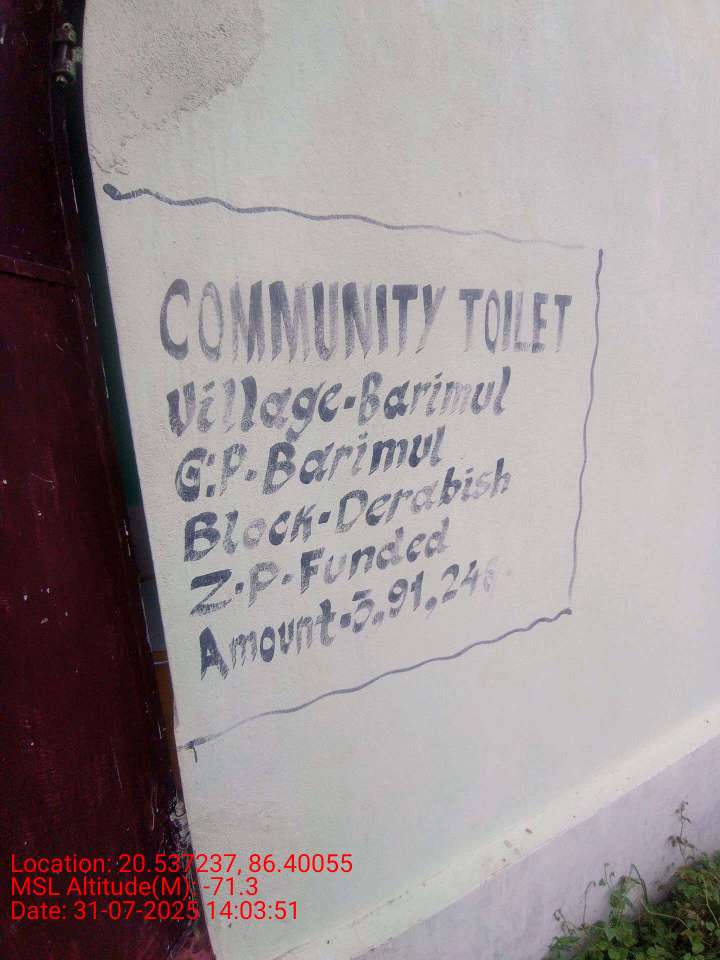 COMMUNITY TOILET
Village-Barimul
G.P.-Barimul
Block-Derabish
Z.P.Funded
Amount-
Location: 20.537237, 86.40055
MSL Altitude(M): -71.3
Date: 31-07-2025 14:03:51